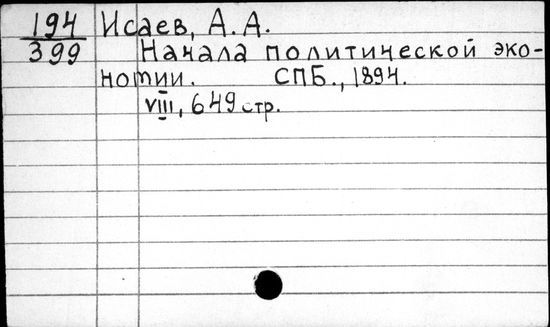 194 Исаев, А.А.
399 Начала политической эко-
номии. СПБ., 1894.
VIII, 649 стр.